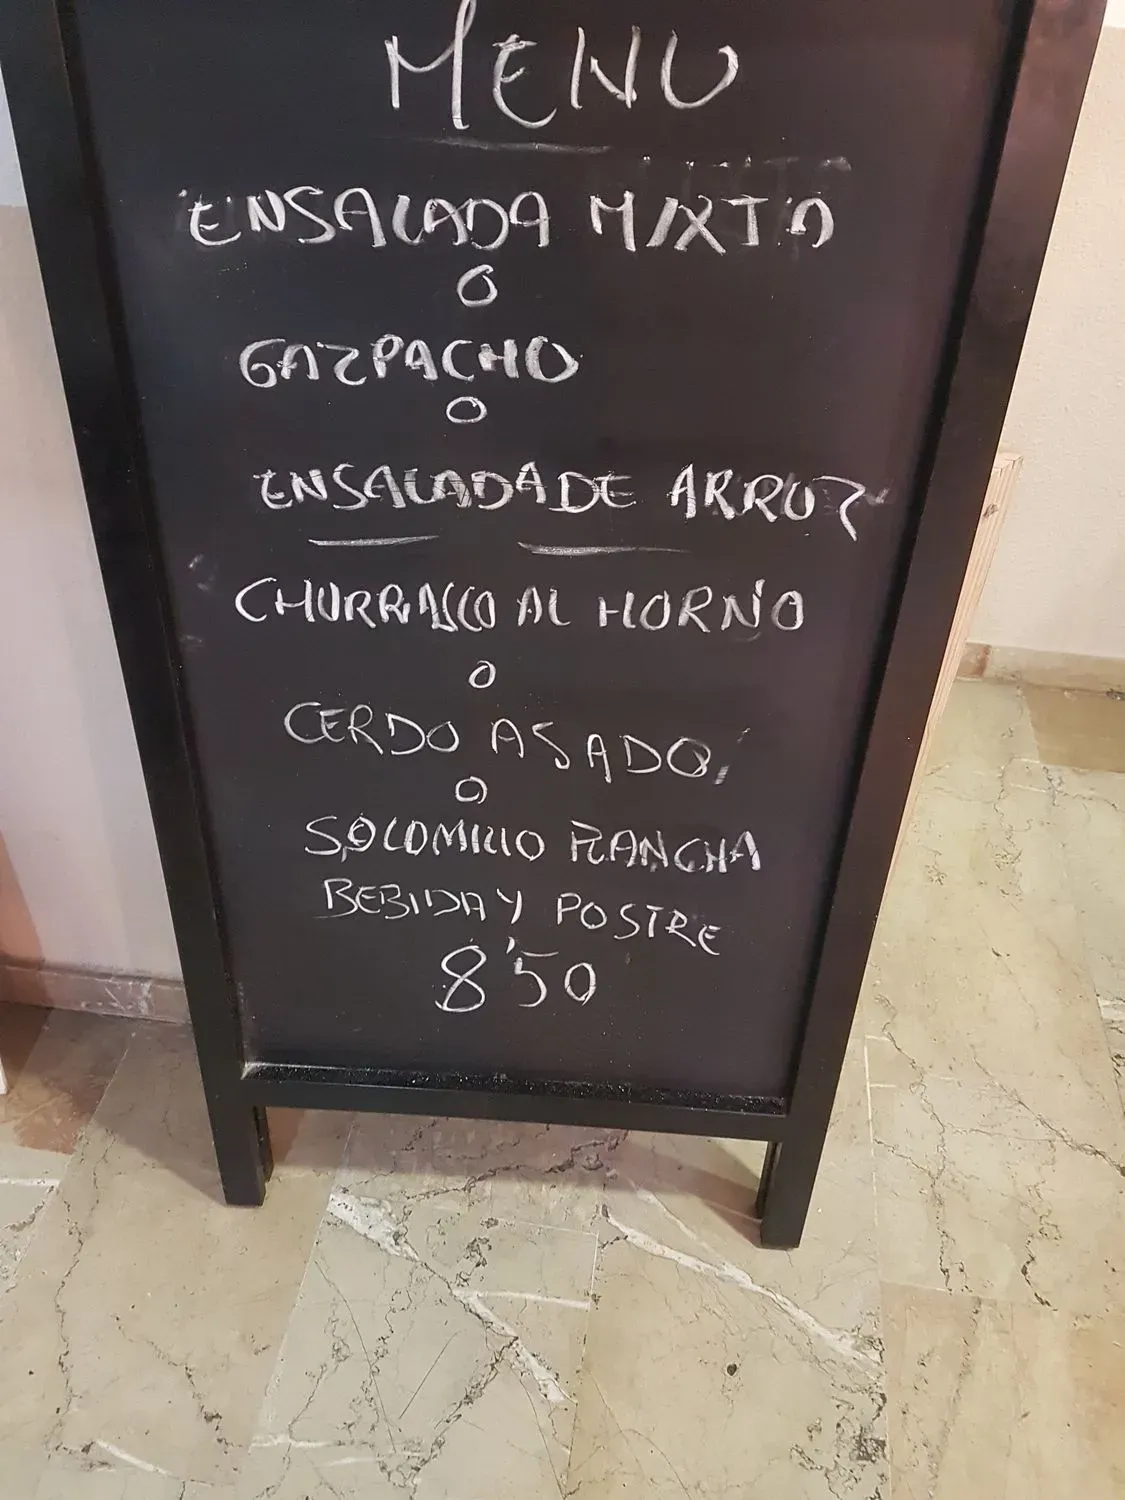 MENU
ENSALADA MIXTA
O
GAZPACHO
O
ENSALADA DE ARROZ
CHURRASCO AL HORNO
O
CERDO ASADO
O
SOLOMILLO PLANCHA
BEBIDA Y POSTRE
8'50